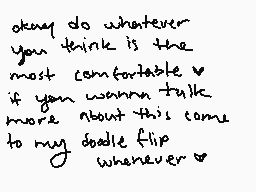 okay do whatever
you think is the
most comfortable ♥
if you wanna talk
more about this come
to my doodle flip
whenever ♥